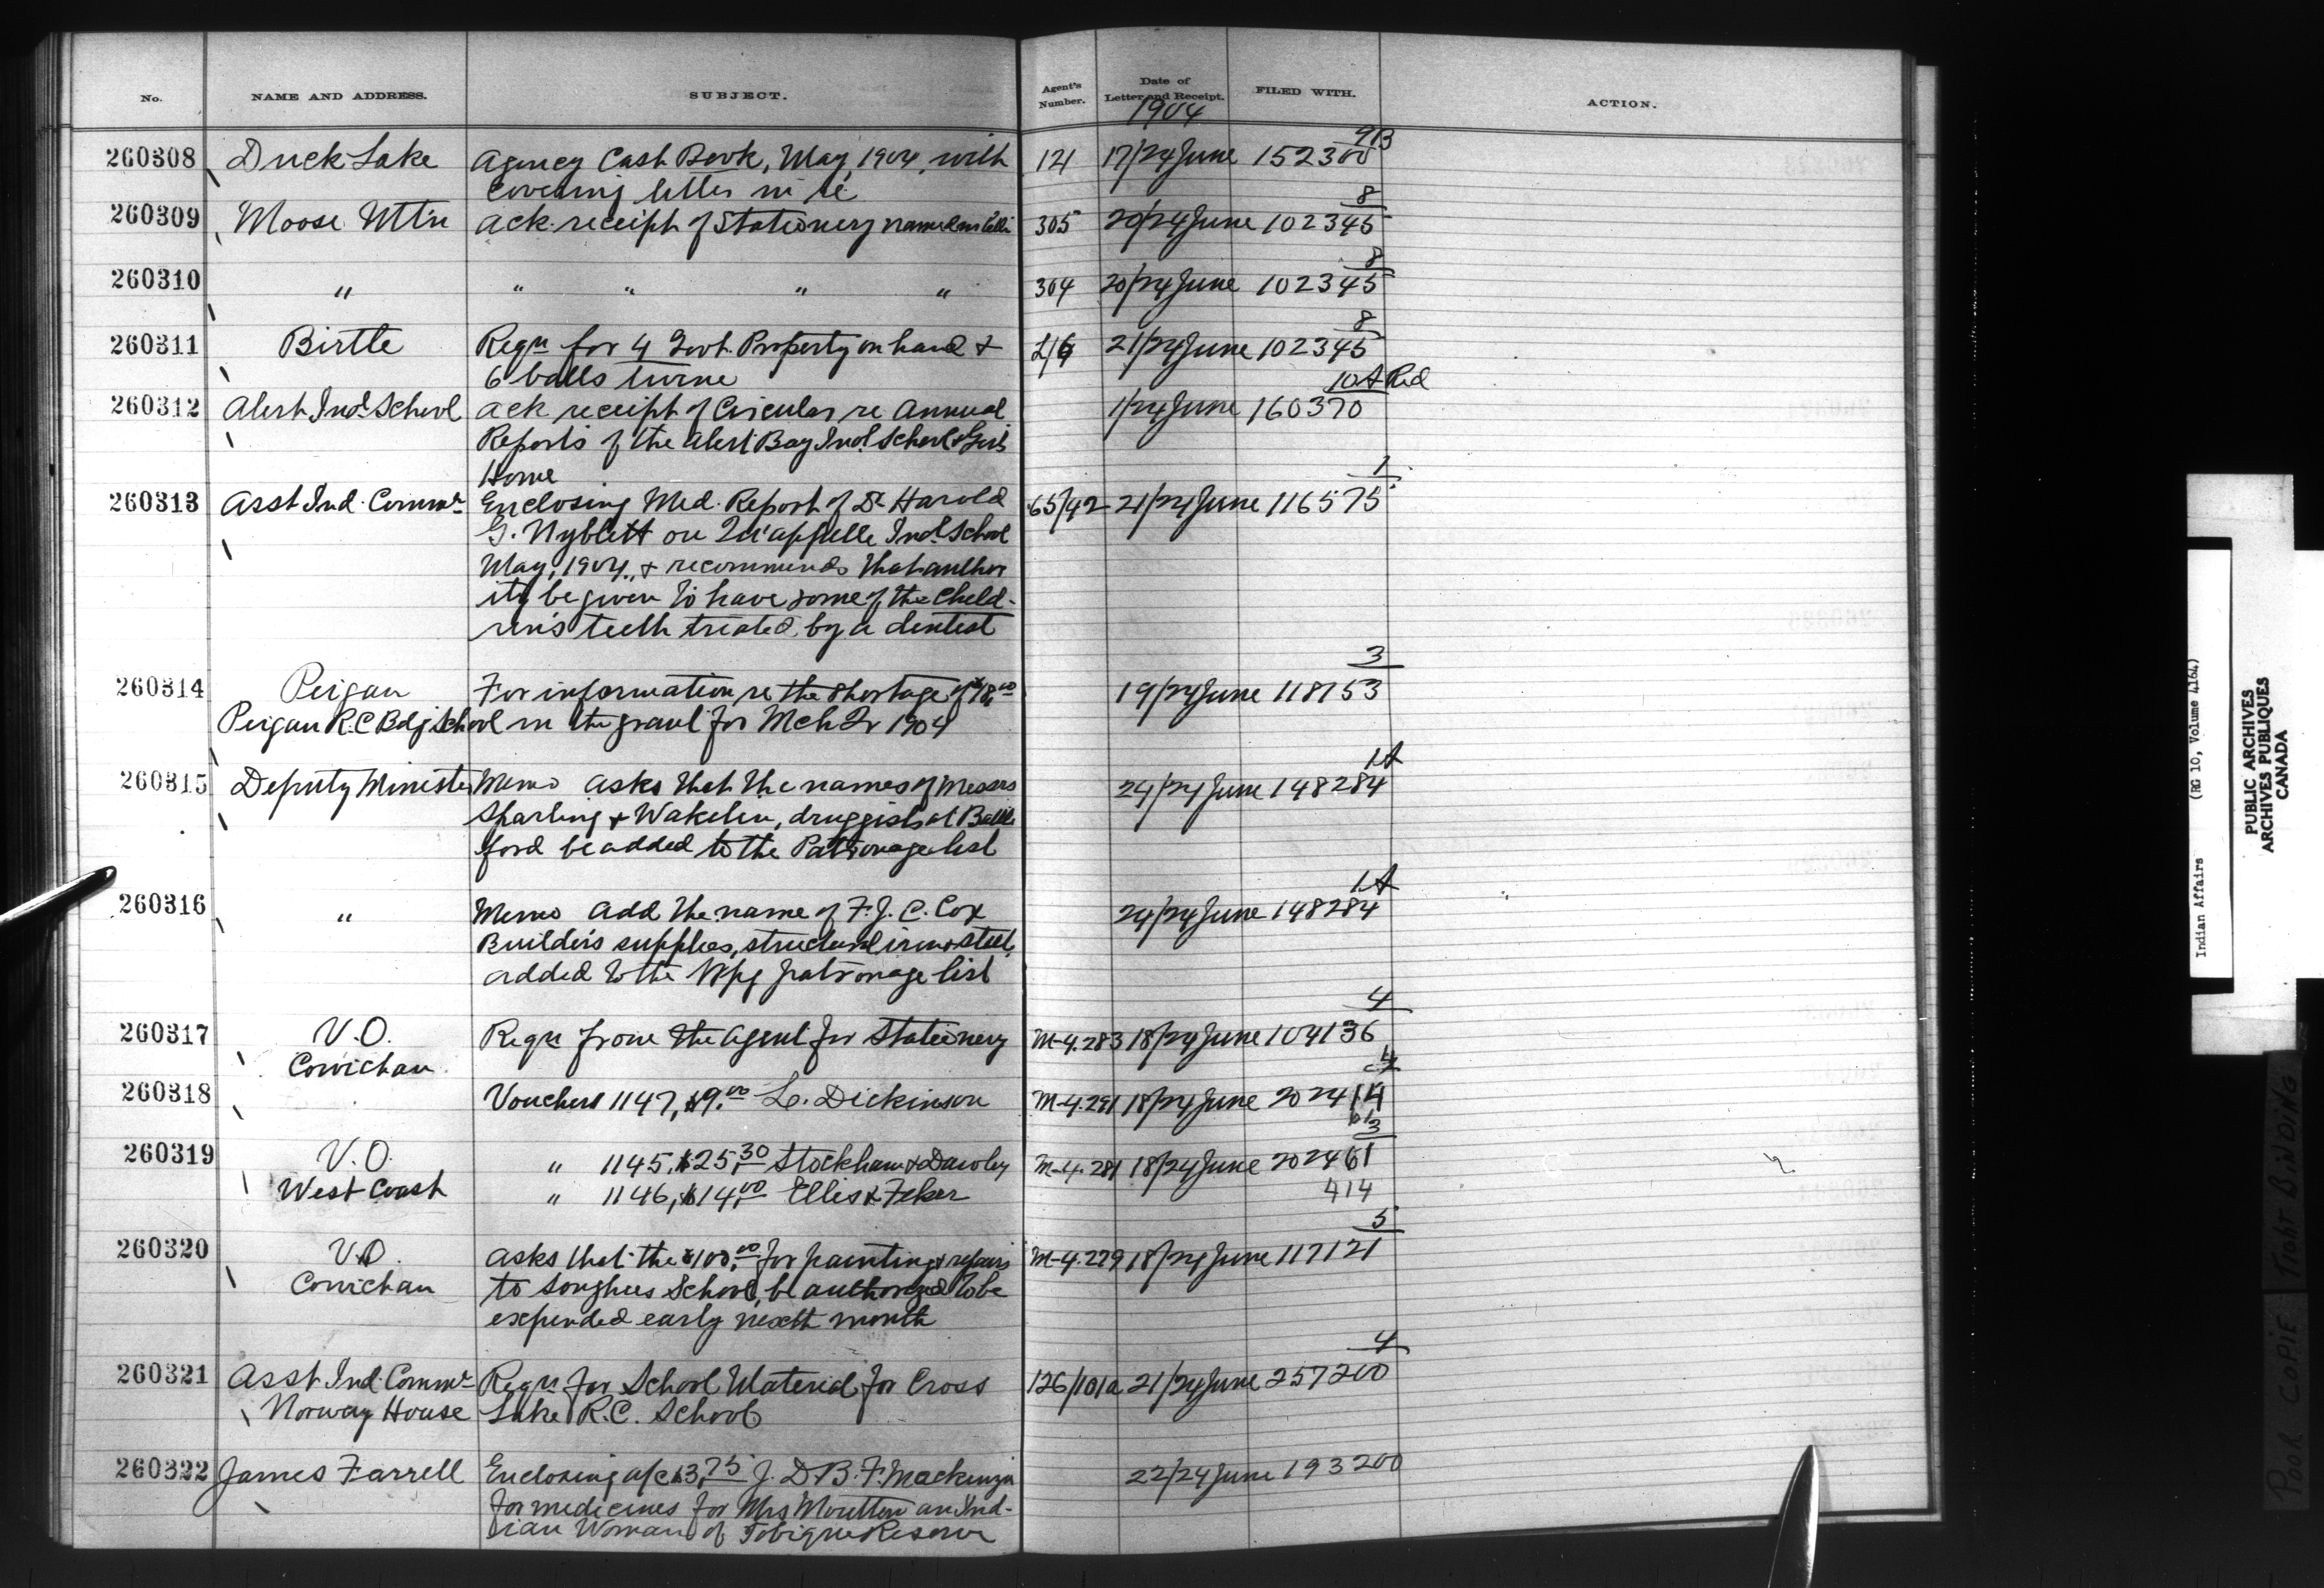 No. NAME AND ADDRESS. SUBJECT. Agent's Number. Date of Letter and Receipt. FILED WITH. ACTION.
1904
9B
260308 Duck Lake Agency Cash Book, May, 1904, with 121 17/24 June 152300
covering letter in re
8
260309 Moose Mtn Ack. receipt of Stationery named in 305 20/24 June 102345
8
260310 " " " " " 304 20/24 June 102345
8
260311 Birtle Reqn for 4 Govt. Property on hand & 21/24 June 102345
6 balls twine
10A Red
260312 Alert Ind. School Ack receipt of Circular re Annual 1/24 June 160370
Reports of the Alert Bay Ind. School & Girls
Home
1
260313 Asst Ind. Commr Enclosing Med. Report of Dr Harold 65/42 21/24 June 116575
G. Nyblett on Qu'appelle Ind. School
May, 1904, & recommends that author
ity be given to have some of the Child-
ren's teeth treated by a dentist
3
260314 Peigan For information re the shortage of $18.00 19/24 June 118153
Peigan R.C Bdg School in the grant for Mch Qr 1904
1A
260315 Deputy Minister Memo asks that the names of Messrs 24/24 June 148284
Sparling & Wakelin, druggists at Battle
ford be added to the Patronage list
1A
260316 " Memo Add the name of F. J. C. Cox 24/24 June 148284
Builders supplies, structural iron & steel,
added to the Wpg patronage list
4
260317 V.O. Reqn from the Agent for Stationery M-4.283 18/24 June 104136
Cowichan
4
260318 Vouchers 1147, $9.00 L. Dickinson M-4.291 18/24 June 202414
61
3
260319 V.O. " 1145, $25.30 Stockham & Dawley M-4.281 18/24 June 202461
West Coast " 1146, $14.00 Ellis & 414
5
260320 V.O. Asks that the $100.00 for painting & repairs M-4.279 18/24 June 117121
Cowichan to Songhees School, be authorized to be
expended early next month
4
260321 Asst Ind. Commr Reqn for School Material for Cross 126/101a 21/24 June 257200
Norway House Lake R.C. School
260322 James Farrell Enclosing a/c $3.75 J. D. B. F. Mackenzie 22/24 June 193200
for medicines for Mrs Moulton an Ind-
ian Woman of Tobique Reserve
Indian Affairs (RG 10, Volume 4164)
PUBLIC ARCHIVES
ARCHIVES PUBLIQUES
CANADA
POOR COPIE TIGHT BINDING